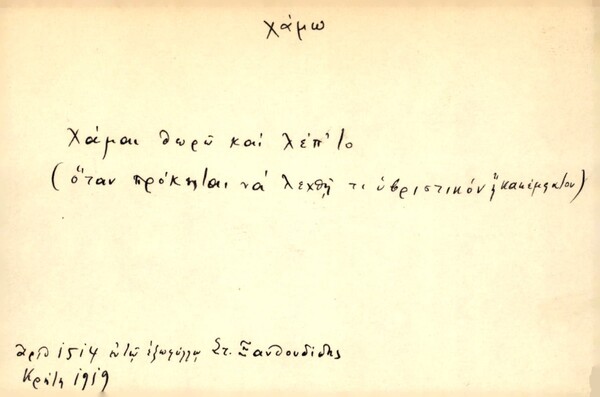 χάμω
Χάμαι θωρῶ καὶ λέπ'το
(ὅταν πρόκηται νά λεχθῇ τι ὑβριστικόν ἢ κακέμφατον)
ἀριθ 1514 ἐξωφύλλῳ Στ. Ξανθουδίδης
Κρήτη 1919